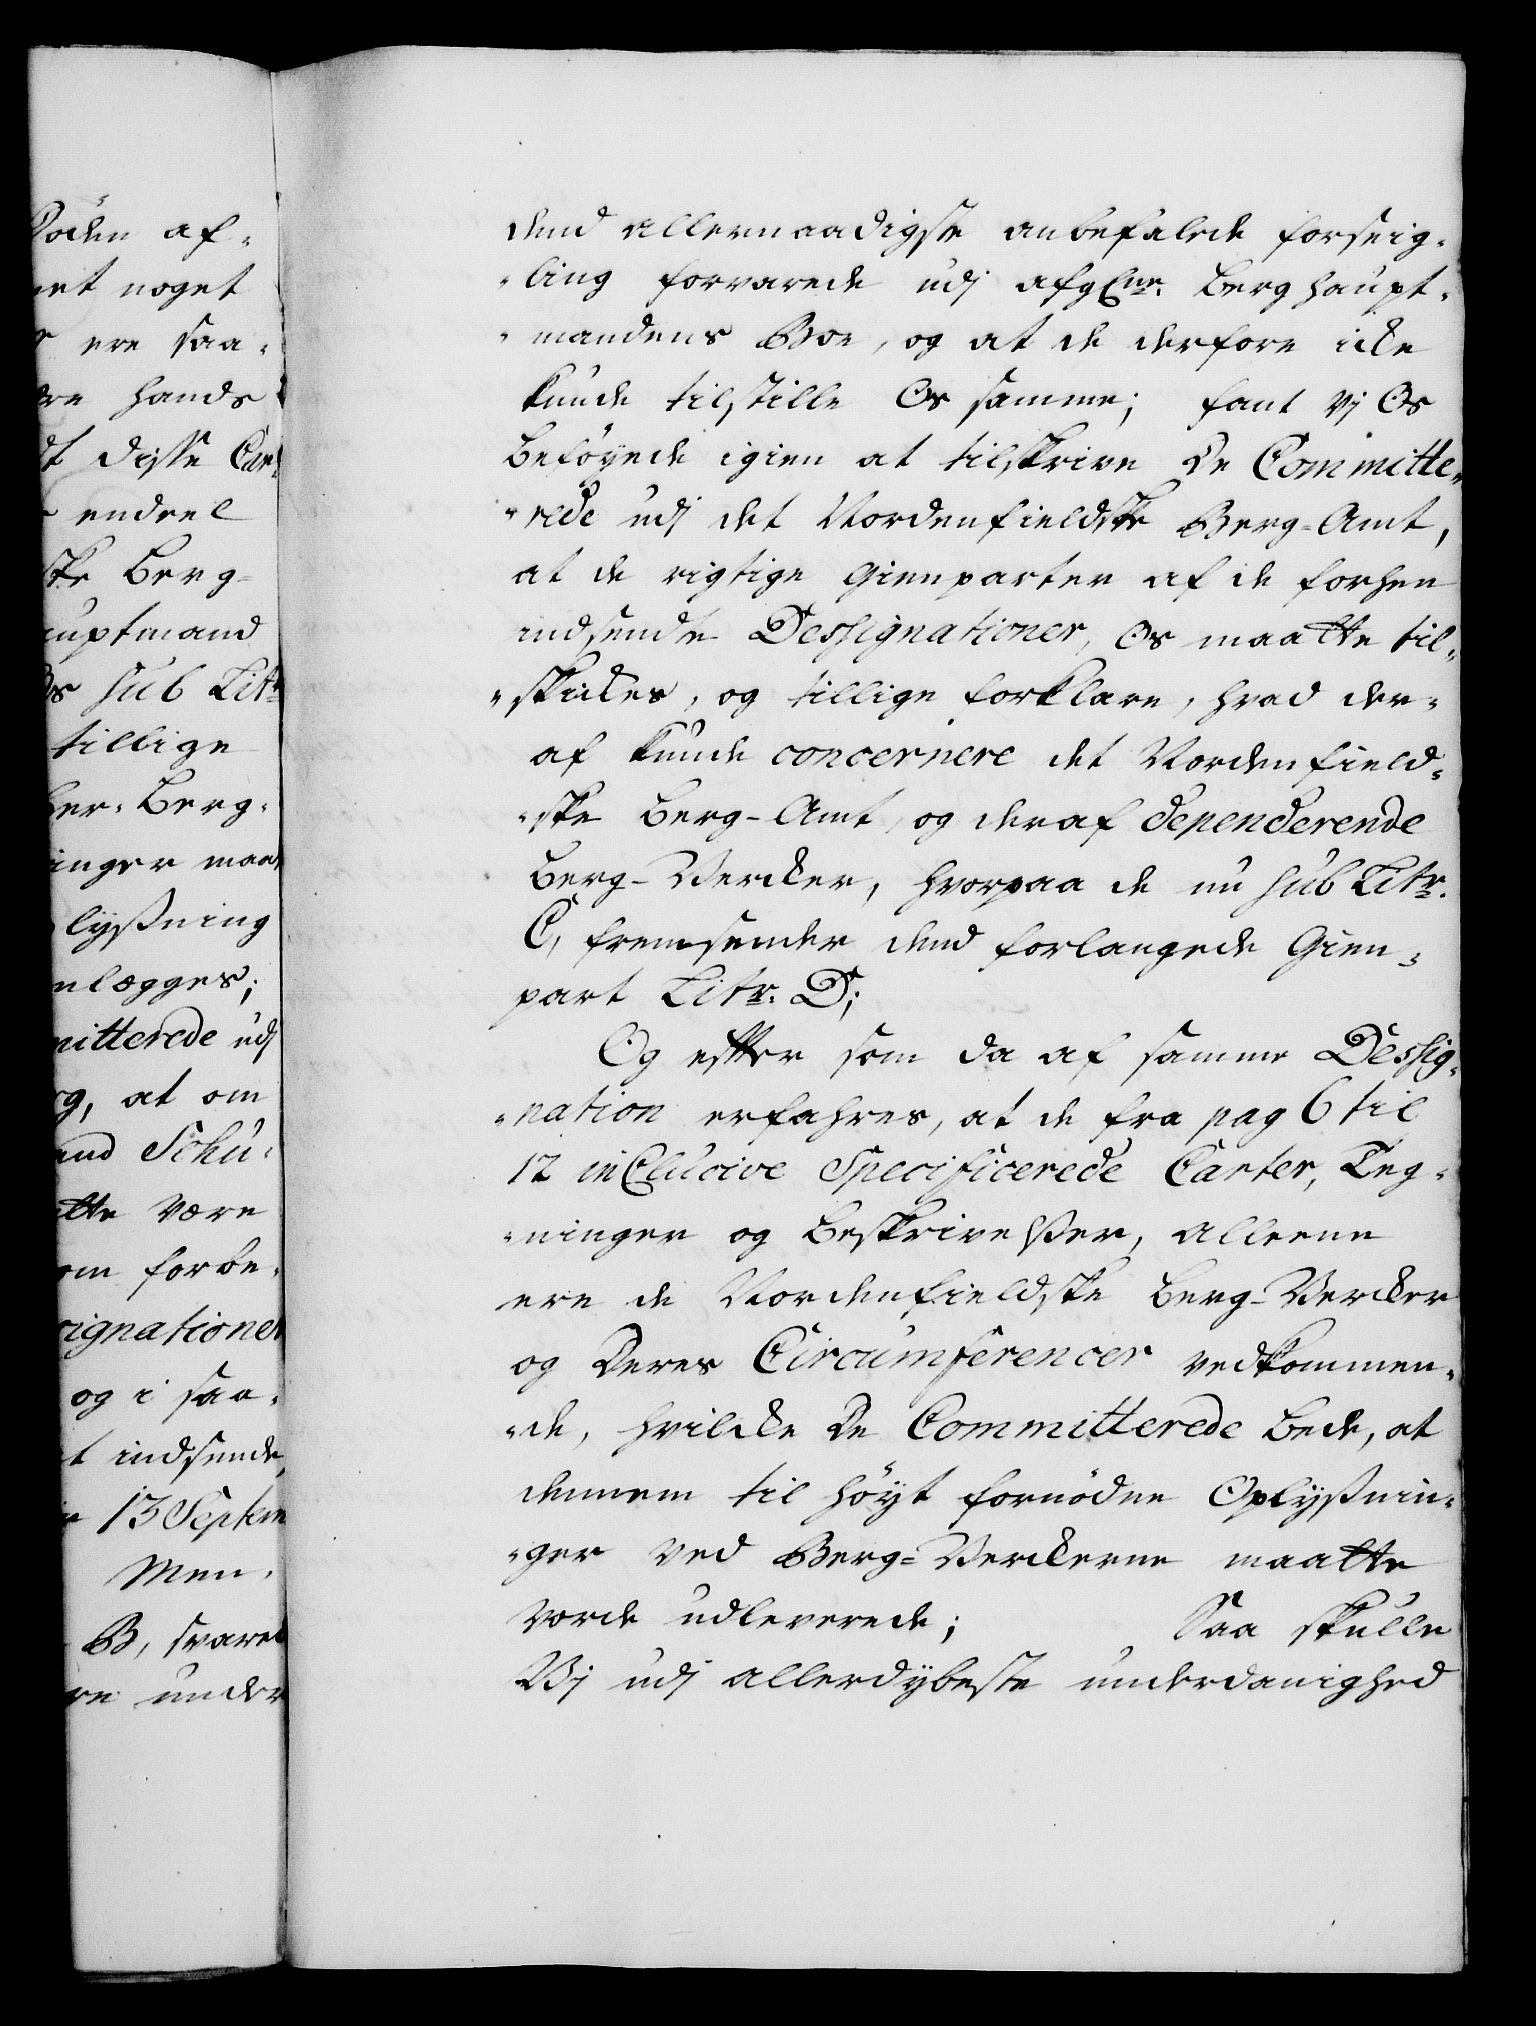 Döden af-
net noget
ere saa-
hands
disse Car
endeel
ske Berg-
auptmand
Os sub Litr
tillige
Ber-Berg-
inger maa
lyßning
nlægges;
mitterede udj
g, at om
and Schu-
atte være
om forbe-
signationer
og i saa-
t indsende,
13 Septem
Men,
B, svared
re under
dend allernaadigste anbefalede forseig-
-ling forvarede udj afgl:ne Berghaupt-
-mandens Boe, og at de derfore icke
kunde tilstille Os samme; fant Vj Os
beföyede igien at tilskrive De Committe-
-rede udj det Nordenfieldske Berg-Amt,
at de rigtige Gienparter af de forhen
indsendte Dessignationer, Os maatte til-
-skickes, og tillige forklare, hvad der-
af kunde concernere det Nordenfield-
-ske Berg-Amt, og deraf dependerende
Berg-Vercker, hvorpaa de nu sub Litr.
C, fremsender dend forlangede Gien-
part Litr. D;
Og efter som da af samme Dessig-
-nation erfahres, at de fra pag 6 til
12 inclucive Specificerede Carter, Teg-
-ninger og Beskrivelßer, alleene
ere de Nordenfieldske Berg-Vercker
og Deres Circumferencer vedkommen-
-de, hvilcke De Committerede bede, at
dennem til höyt fornödne Oplyßnin-
-ger ved Berg-Verckerne maatte
vorde udleverede; Saa skulle
Vj udj allerdybeste underdanighed